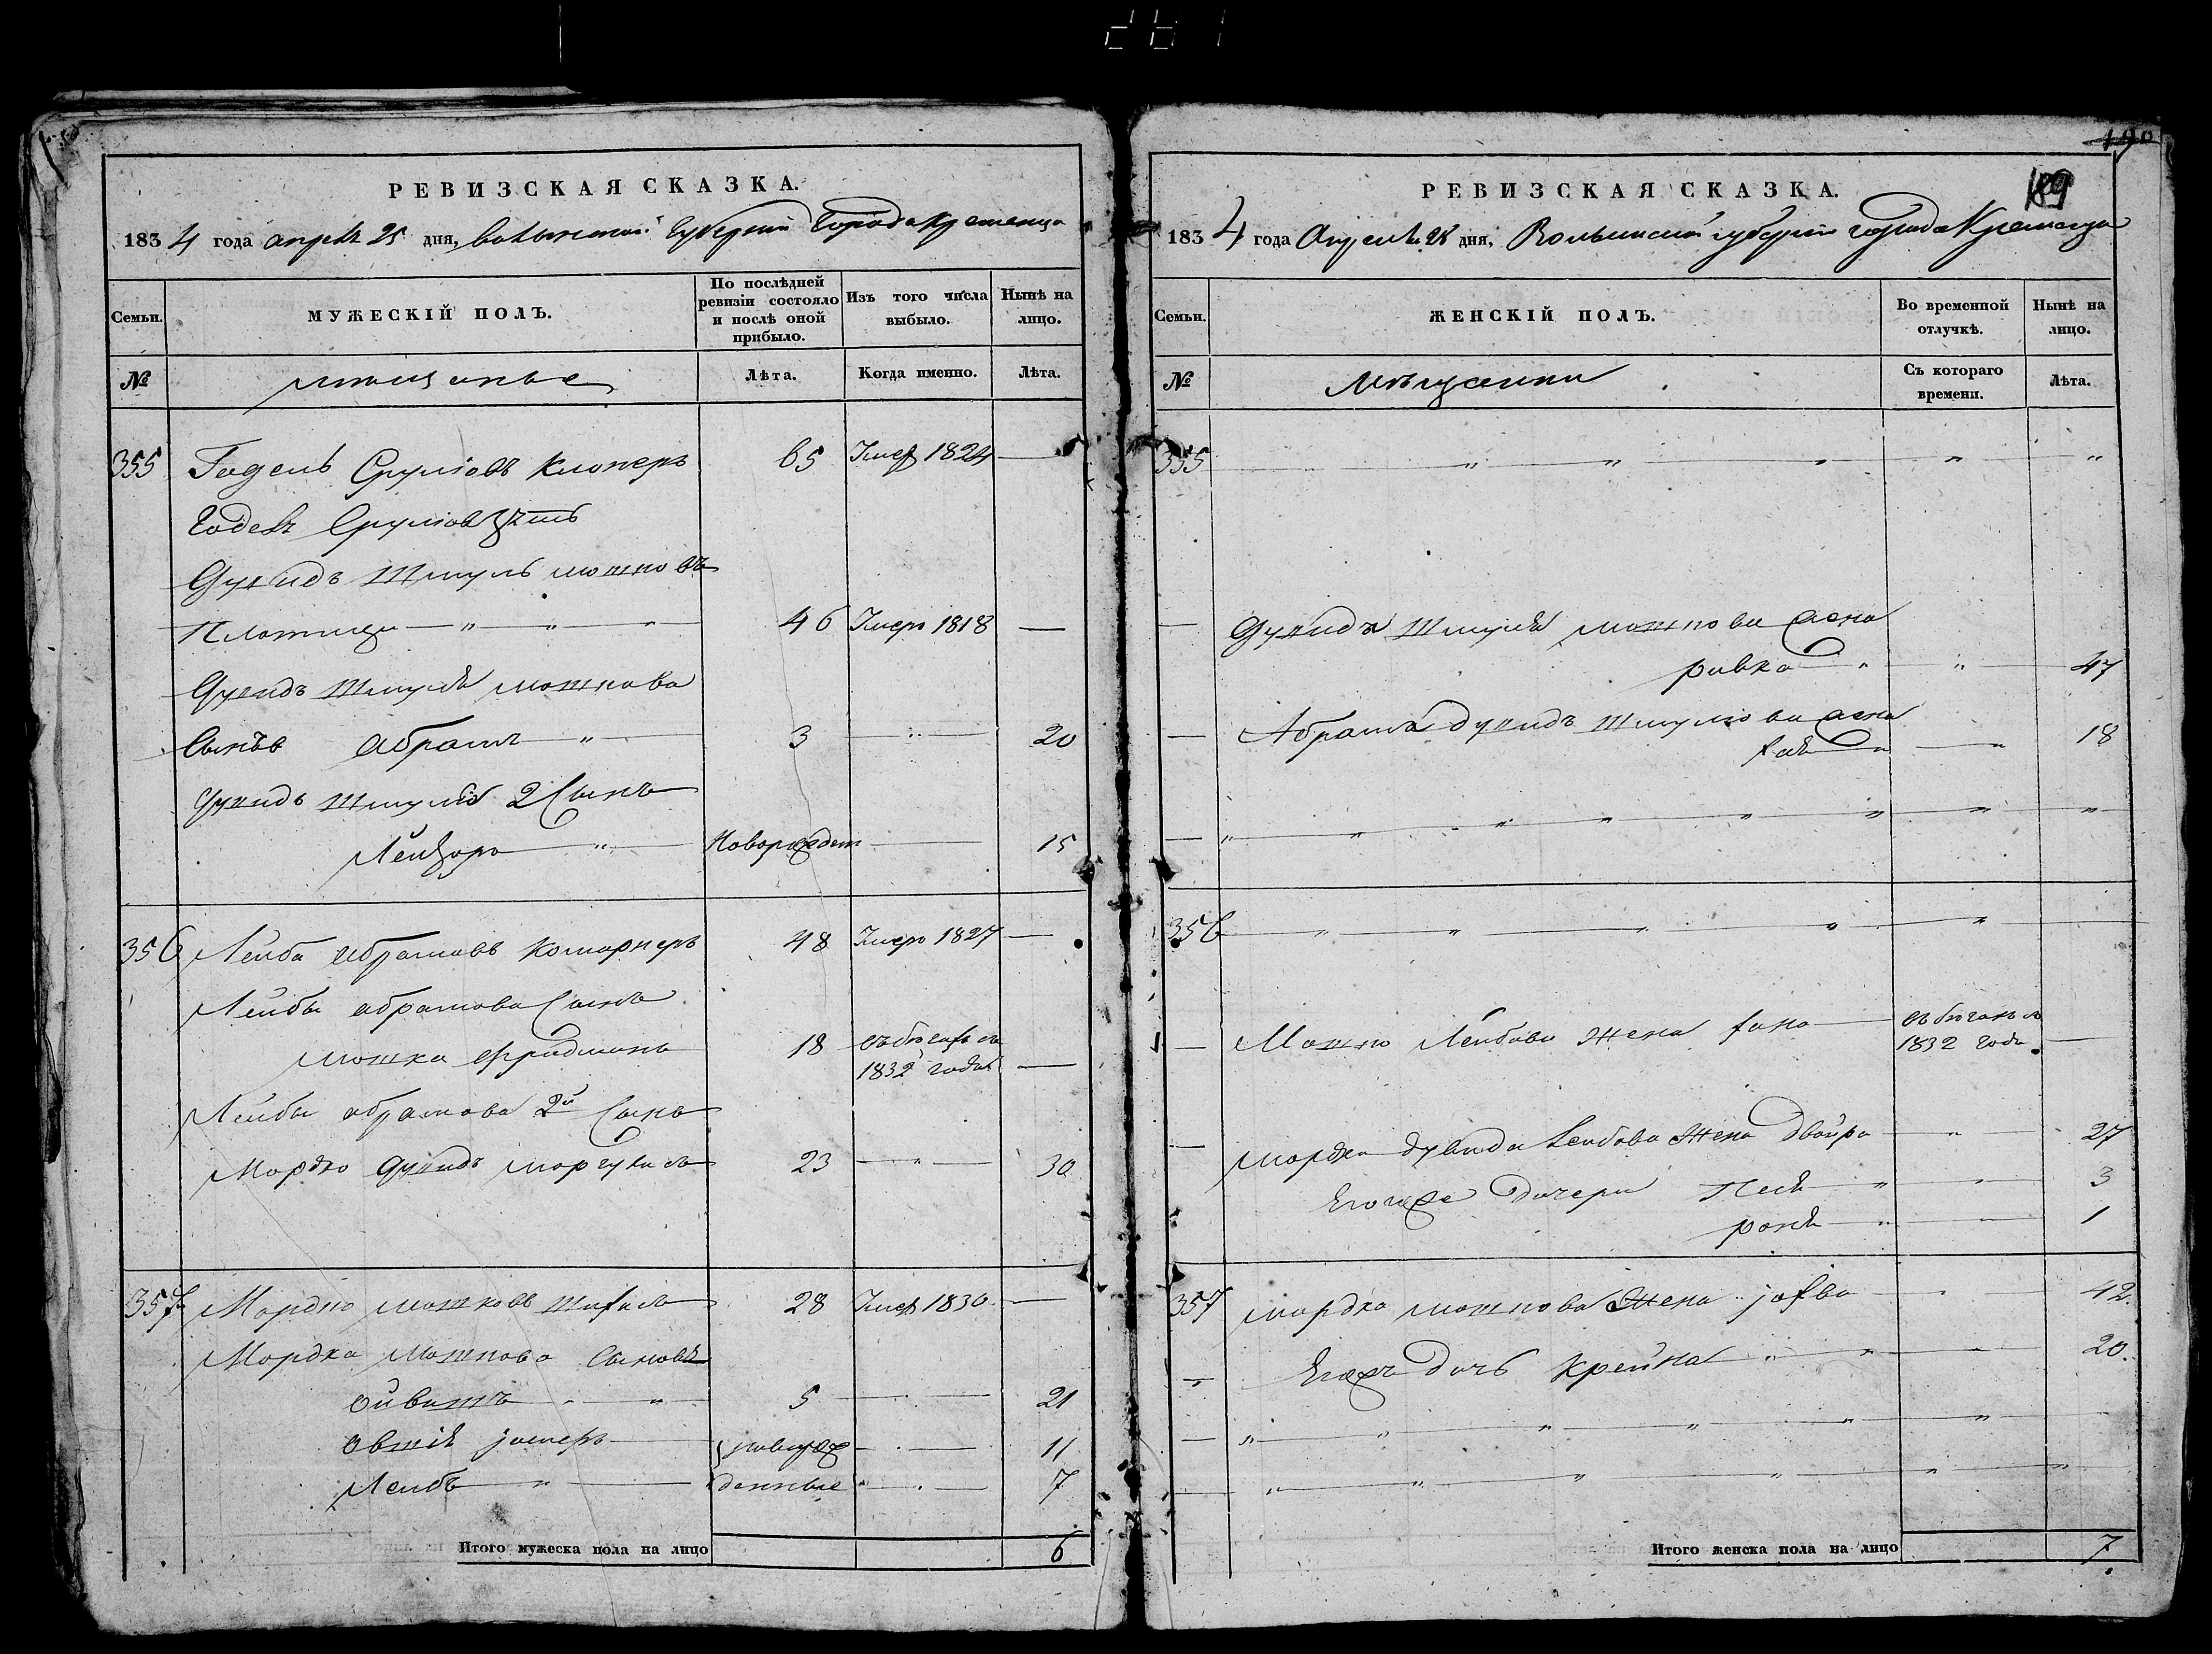 РЕВИЗСКАЯ СКАЗКА.
1834 года апреля 25 дня, волынской Губернии Города Кременца
Семьи. МУЖЕСКІЙ ПОЛЪ. По послѣдней ревизіи состояло и послѣ оной прибыло. Изъ того числа выбыло. Нынѣ на лицо.
№ мещанъе Лѣта. Когда именно. Лѣта.
355 Годель Срулiовъ 65 Умер 1824 —
Годель Срулiов
Дувидъ Шмуль мошковъ
46 Умеръ 1818 —
Дувидъ Шмуля мошкова
Сынъ абрамъ " 3 " 20
Дувидъ Шмуля 2 Сынъ
Лейзоръ " Новорожден 15
356 Лейба абрамовъ 48 Умеръ 1827 —
Лейбы абрамова Сынъ
мошка фридманъ 18
1832 года —
Лейбы абрамова 2й Сынъ
Мордко Дувидъ 23 " 30
357 Мордко мошковъ 28 Умер 1830 —
Мордка Мошкова сыновя
5 21
11
Лейбъ " денные 7
Итого мужеска пола на лицо 6
190
189
РЕВИЗСКАЯ СКАЗКА.
1834 года Апреля 28 дня, Волынской губернии города Кременца
Семьи. ЖЕНСКІЙ ПОЛЪ. Во временной отлучкѣ. Нынѣ на лицо.
№ Мещанки Съ котораго времени. Лѣта.
355 " " " " "
— Дувидъ Шмуля мошкова жена
ривка " " 47
— Абрама дувидъ Шмулiова жена
" 18
— " " " " " " " "
356 " " " " "
— Мошко Лейбова жена
1832 года —
— мордка дувида Лейбова жена Двойра " 27
Егоже дочери Песя " " 3
" 1
357 мордка мошкова жена " 42.
— Егожъ дочь Крейна " " 20.
— " " " " " "
— " " " " " "
Итого женска пола на лицо 7